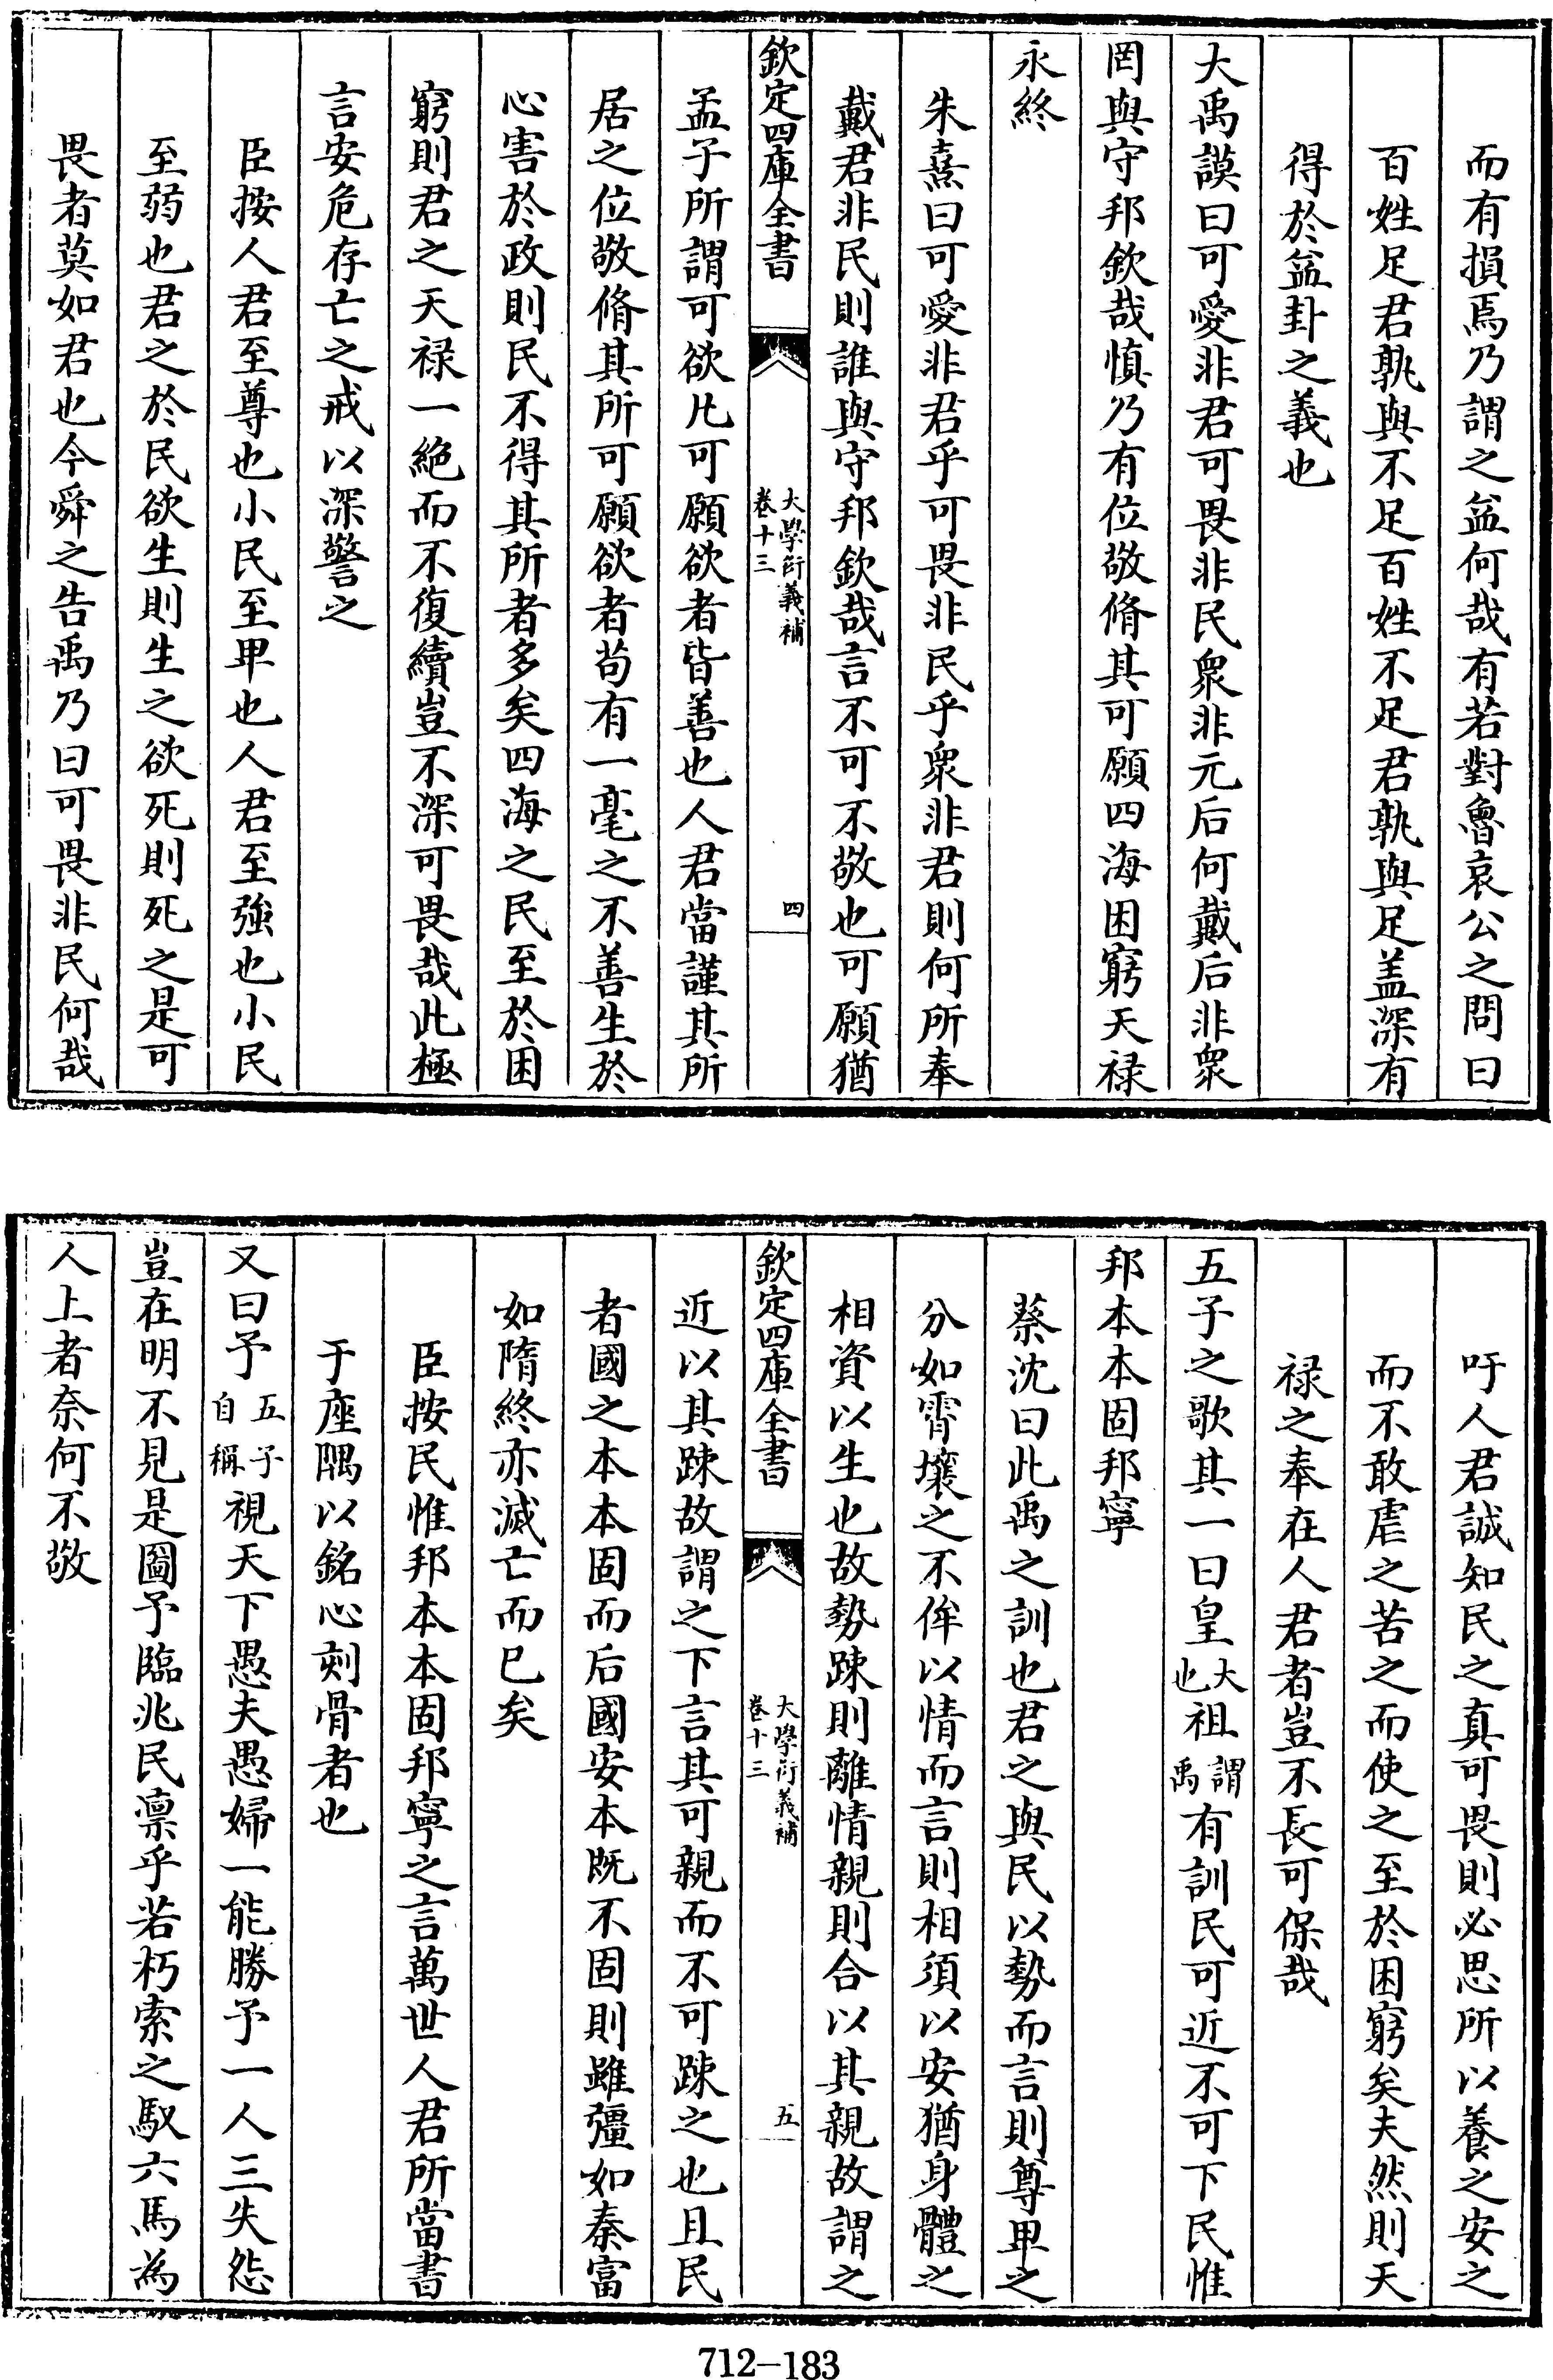 而有損焉乃謂之益何哉有若對魯哀公之問曰
百姓足君孰與不足百姓不足君孰與足盖深有
得於益卦之義也
大禹謨曰可愛非君可畏非民衆非元后何戴后非衆
罔與守邦欽哉慎乃有位敬脩其可願四海困窮天禄
永終
朱熹曰可愛非君乎可畏非民乎衆非君則何所奉
戴君非民則誰與守邦欽哉言不可不敬也可願猶
欽定四庫全書
大學衍義補
卷十三
四
孟子所謂可欲凡可願欲者皆善也人君當謹其所
居之位敬脩其所可願欲者苟有一毫之不善生於
心害於政則民不得其所者多矣四海之民至於困
窮則君之天禄一絶而不復續豈不深可畏哉此極
言安危存亡之戒以深警之
臣按人君至尊也小民至卑也人君至強也小民
至弱也君之於民欲生則生之欲死則死之是可
畏者莫如君也今舜之告禹乃曰可畏非民何哉
吁人君誠知民之真可畏則必思所以養之安之
而不敢虐之苦之而使之至於困窮矣夫然則天
禄之奉在人君者豈不長可保哉
五子之歌其一曰皇大也祖謂禹有訓民可近不可下民惟
邦本本固邦寧
蔡沈曰此禹之訓也君之與民以勢而言則尊卑之
分如霄壤之不侔以情而言則相須以安猶身體之
相資以生也故勢踈則離情親則合以其親故謂之
欽定四庫全書
大學衍義補
卷十三
五
近以其踈故謂之下言其可親而不可踈之也且民
者國之本本固而后國安本既不固則雖彊如秦富
如隋終亦滅亡而已矣
臣按民惟邦本本固邦寧之言萬世人君所當書
于座隅以銘心刻骨者也
又曰予五子自稱視天下愚夫愚婦一能勝予一人三失怨
豈在明不見是圖予臨兆民凛乎若朽索之馭六馬為
人上者奈何不敬
712-183